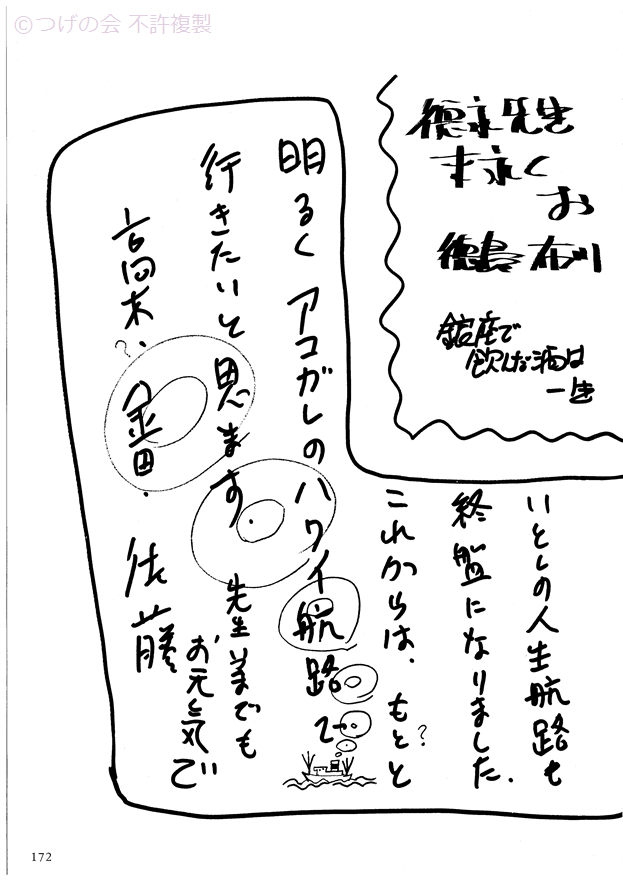 © つげの会 不許複製
徳永先生
末永く
お
徳島
銀座で
飲んだ酒は
一生
いとしの人生航路も
終盤になりました.
これからは、もとと
?
明るくアコガレのハワイ航路で
行きたいと思ます 先生までも
お元気で
高木、金田、佐藤
?
172